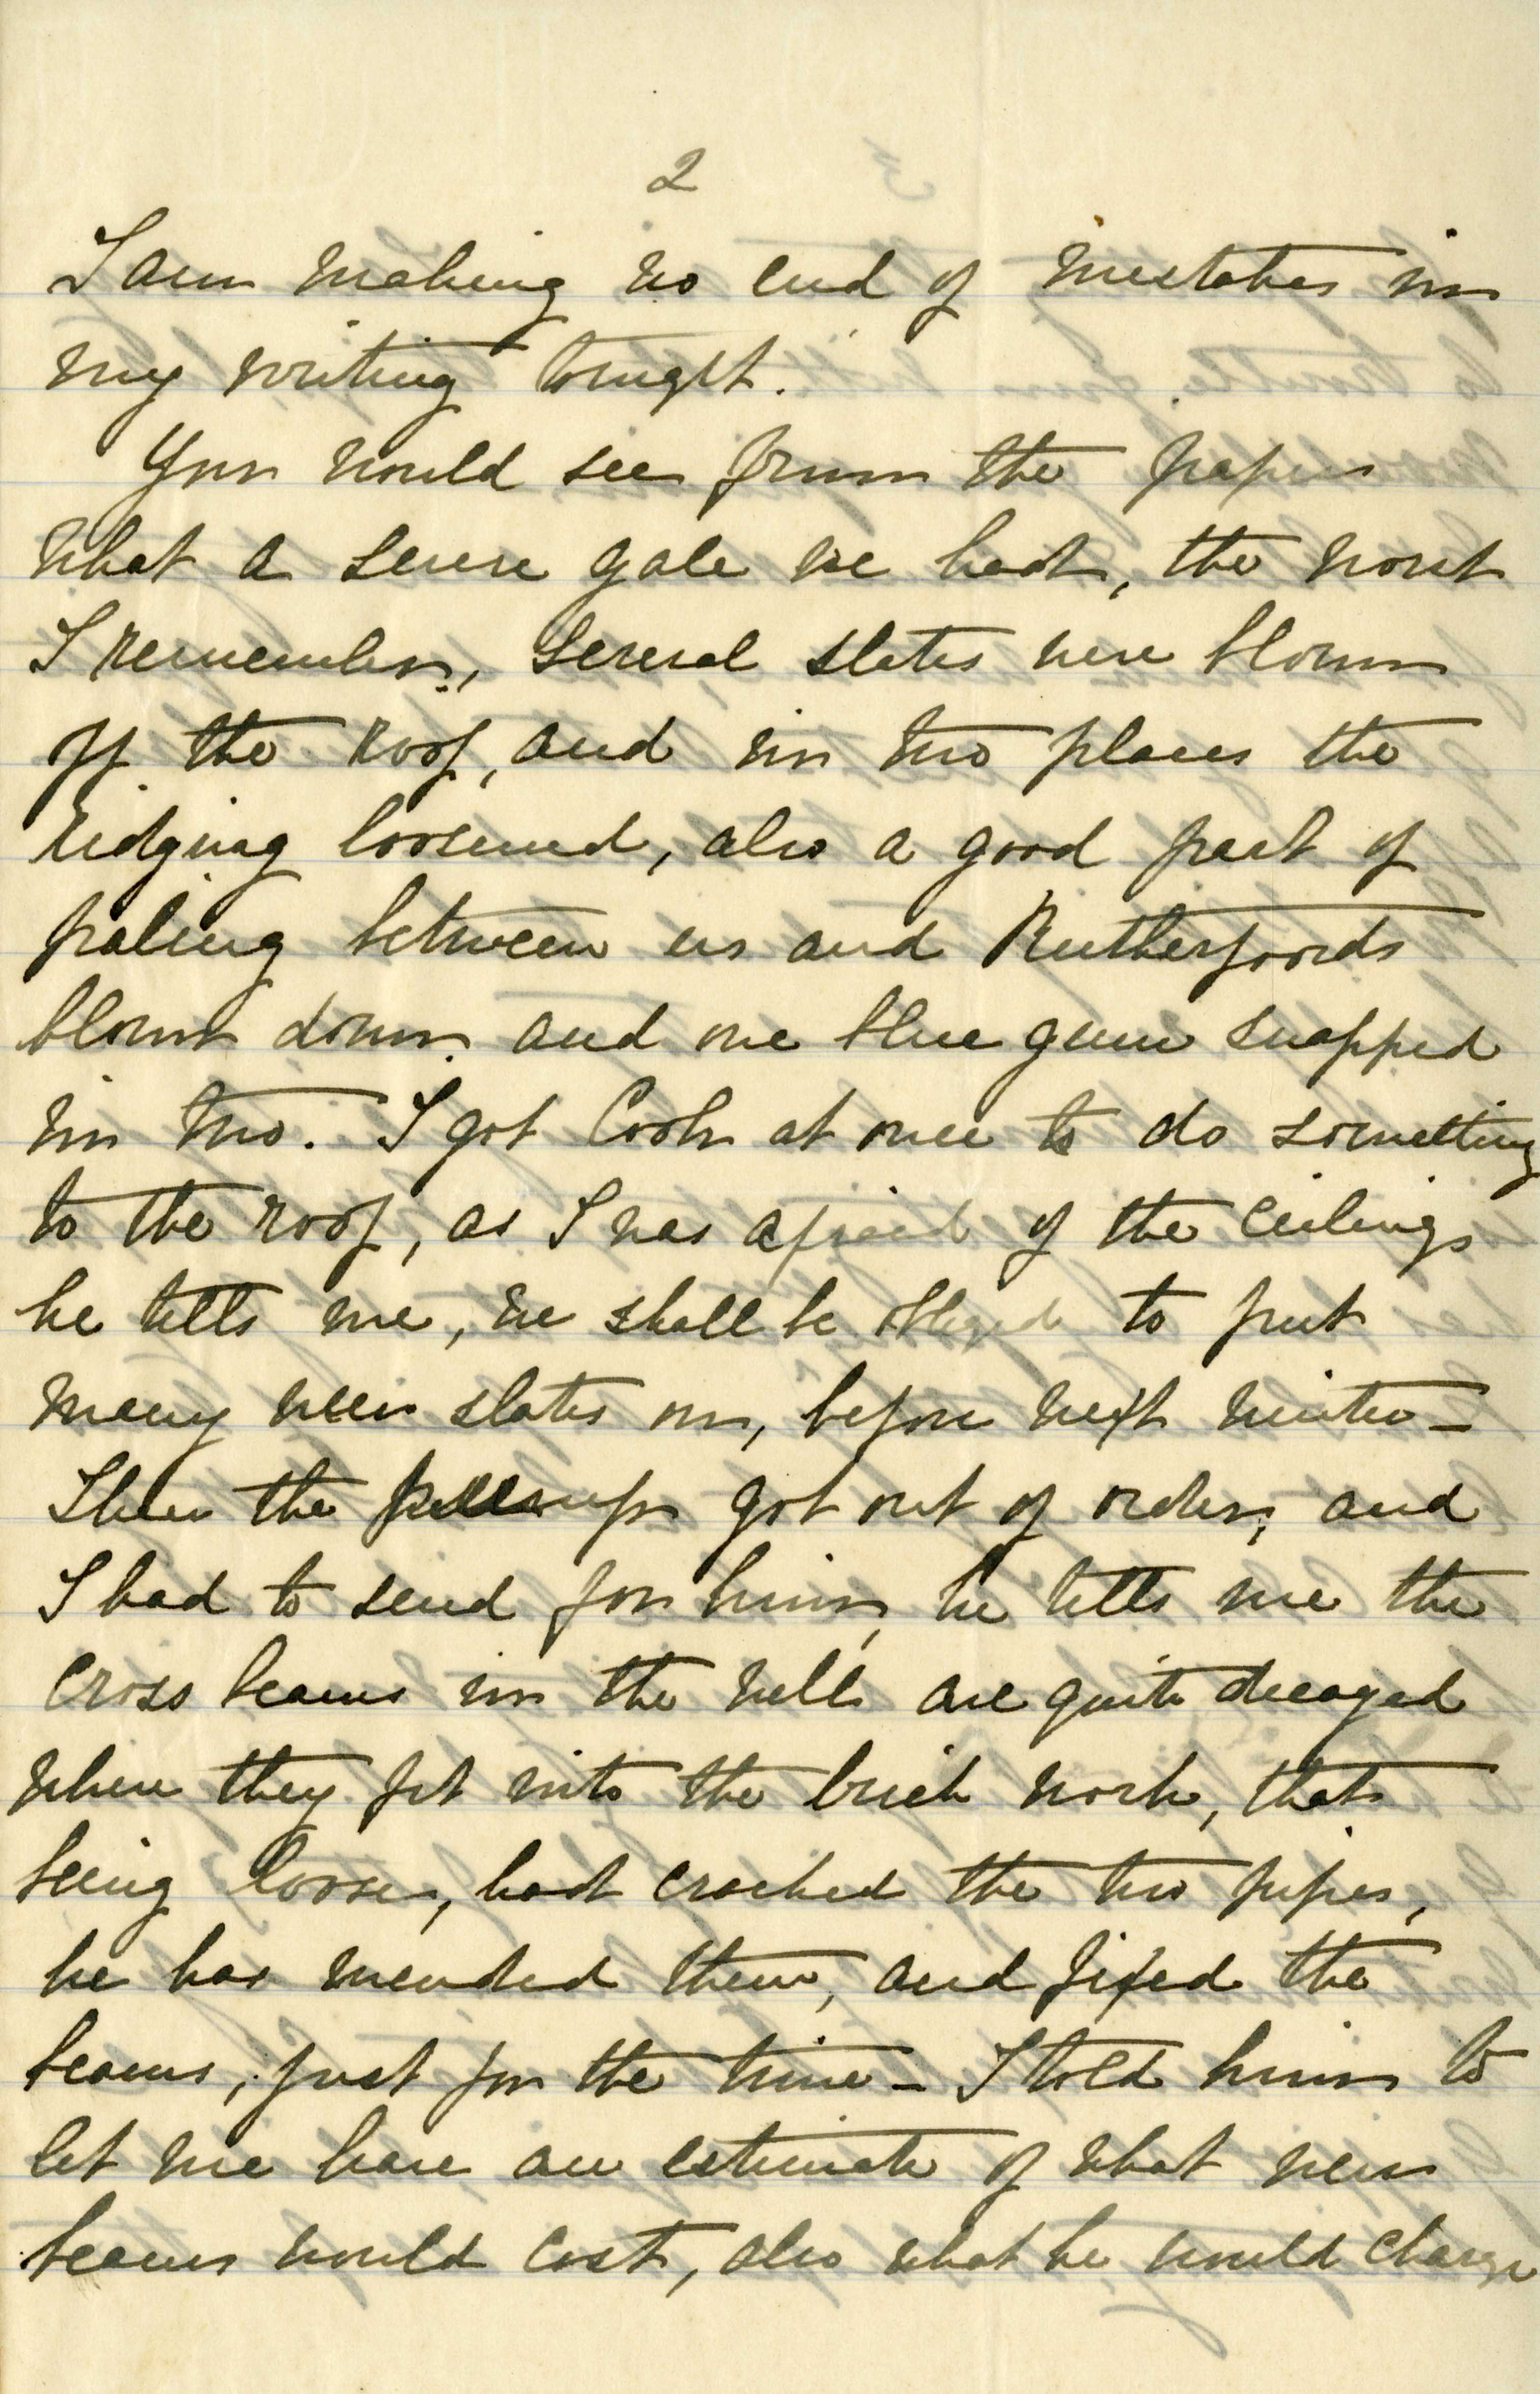 2
I am making no end of mistakes in
my writing tonight.
You would see from the papers
what a severe gale we had, the worst
I remember, several slates were blown
off the roof, and in two places the
ridging loosened, also a good part of
paling between us and Rutherfords
blown down and one blue gum snapped
in two. I got Cook at once to do something
to the roof, as I was afraid of the ceilings
he tells me, we shall be obliged to put
many new slates on, before next winter –
Then the pump got out of order, and
I had to send for him, he tells me the
cross beams in the well are quite decayed
where they fit into the brick work, that
being loose, had cracked the two pipes,
he has mended them, and fixed the
beams, just for the time – I told him to
let me have an estimate of what new
beams would cost, also what he would charge